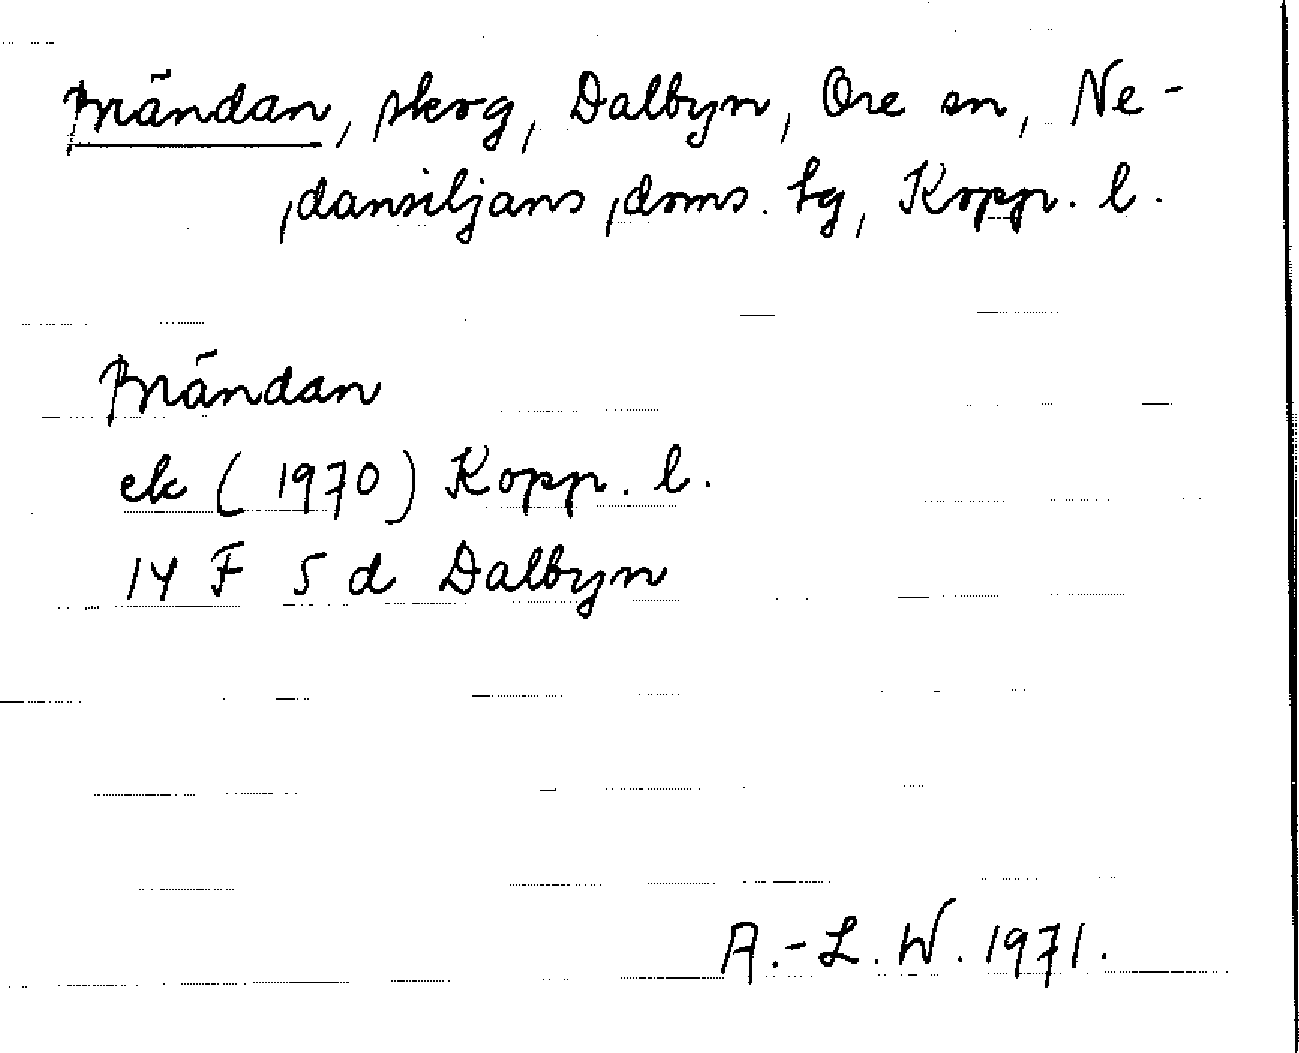 skog, Dalbyn, Ore sn, Ne-
dansiljans doms. tg, Kopp. l.
ek (1970) Kopp. l.
14 F 5 d Dalbyn
A.-L. W. 1971.